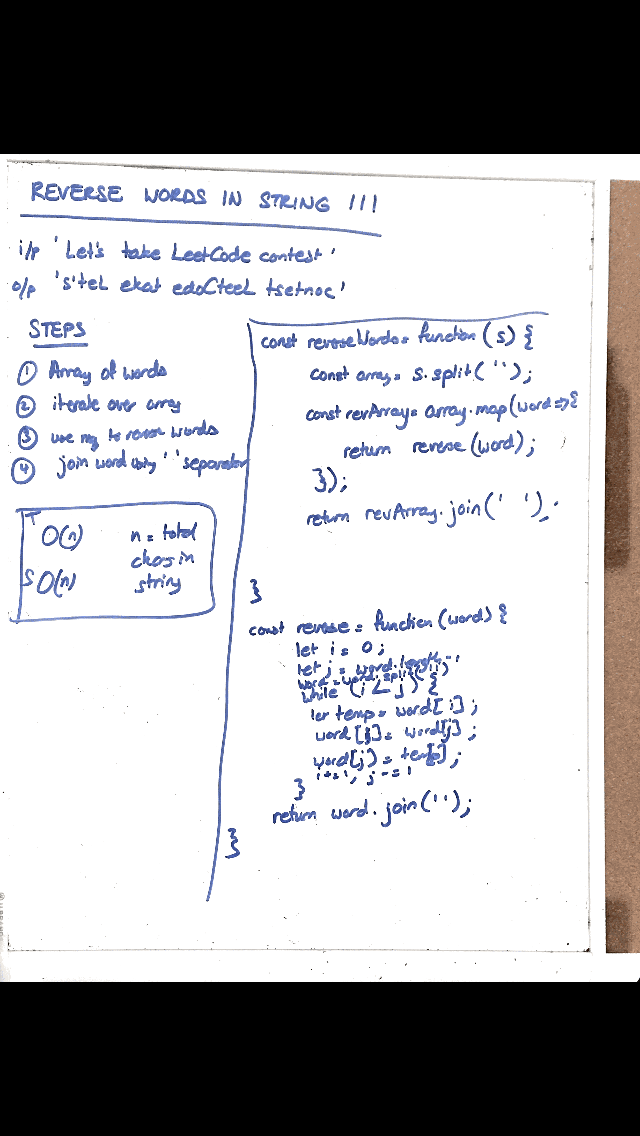 REVERSE WORDS IN STRING !!!
i/p 'Let's take LeetCode contest'
o/p 's'teL ekat edoCteeL tsetnoc'
STEPS
① Array of words
② iterate over array
③ use to words
④ join word using ' ' separator
T O(n) n = total
chars in
S O(n) string
const reverseWords = function (s) {
const array = s.split(' ');
const revArray = array.map(word => {
return reverse (word);
});
return revArray.join(' ');
}
const reverse = function (word) {
let i = 0;
let j = word.length - 1
word = word.split('')
while (i < j) {
let temp = word[i];
word[j] = word[j];
word[j] = temp;
i += 1, j -= 1
}
return word.join('');
}